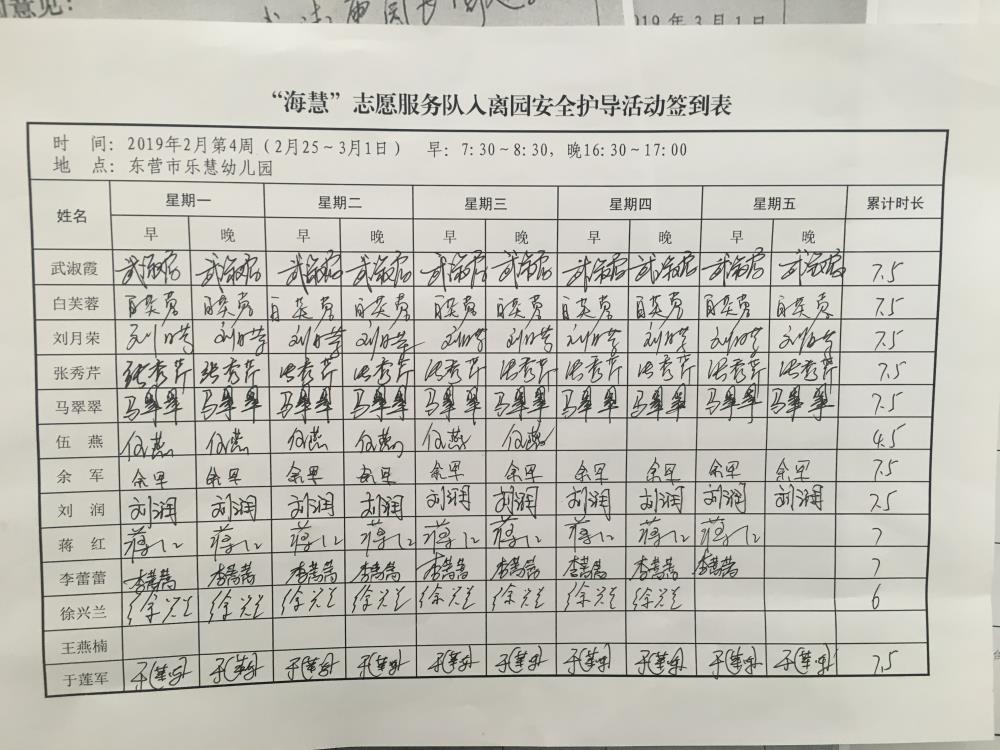 意见：
2019年3月1日
“海慧”志愿服务队入离园安全护导活动签到表
时 间：2019年2月第4周（2月25～3月1日） 早：7:30～8:30，晚16:30～17:00
地 点：东营市乐慧幼儿园
姓名 星期一 星期二 星期三 星期四 星期五 累计时长
早 晚 早 晚 早 晚 早 晚 早 晚
武淑霞 武淑霞 武淑霞 武淑霞 武淑霞 武淑霞 武淑霞 武淑霞 武淑霞 武淑霞 武淑霞 7.5
白芙蓉 白芙蓉 白芙蓉 白芙蓉 白芙蓉 白芙蓉 白芙蓉 白芙蓉 白芙蓉 白芙蓉 白芙蓉 7.5
刘月荣 刘月荣 刘月荣 刘月荣 刘月荣 刘月荣 刘月荣 刘月荣 刘月荣 刘月荣 刘月荣 7.5
张秀芹 张秀芹 张秀芹 张秀芹 张秀芹 张秀芹 张秀芹 张秀芹 张秀芹 张秀芹 张秀芹 7.5
马翠翠 马翠翠 马翠翠 马翠翠 马翠翠 马翠翠 马翠翠 马翠翠 马翠翠 马翠翠 马翠翠 7.5
伍 燕 伍燕 伍燕 伍燕 伍燕 伍燕 伍燕 4.5
余 军 余军 余军 余军 余军 余军 余军 余军 余军 余军 余军 7.5
刘 润 刘润 刘润 刘润 刘润 刘润 刘润 刘润 刘润 刘润 刘润 7.5
蒋 红 蒋红 蒋红 蒋红 蒋红 蒋红 蒋红 蒋红 蒋红 蒋红 7
李蕾蕾 李蕾蕾 李蕾蕾 李蕾蕾 李蕾蕾 李蕾蕾 李蕾蕾 李蕾蕾 李蕾蕾 李蕾蕾 7
徐兴兰 徐兴兰 徐兴兰 徐兴兰 徐兴兰 徐兴兰 徐兴兰 徐兴兰 徐兴兰 6
王燕楠
于莲军 于莲军 于莲军 于莲军 于莲军 于莲军 于莲军 于莲军 于莲军 于莲军 于莲军 7.5